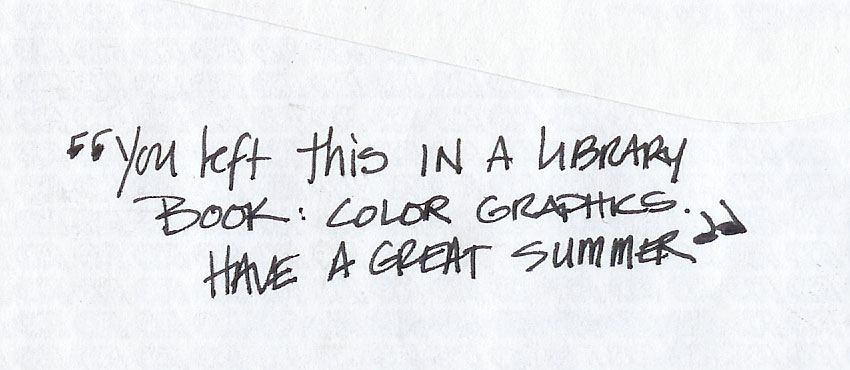 “You left this IN A LIBRARY
BOOK: COLOR GRAPHICS.
HAVE A GREAT SUMMER”